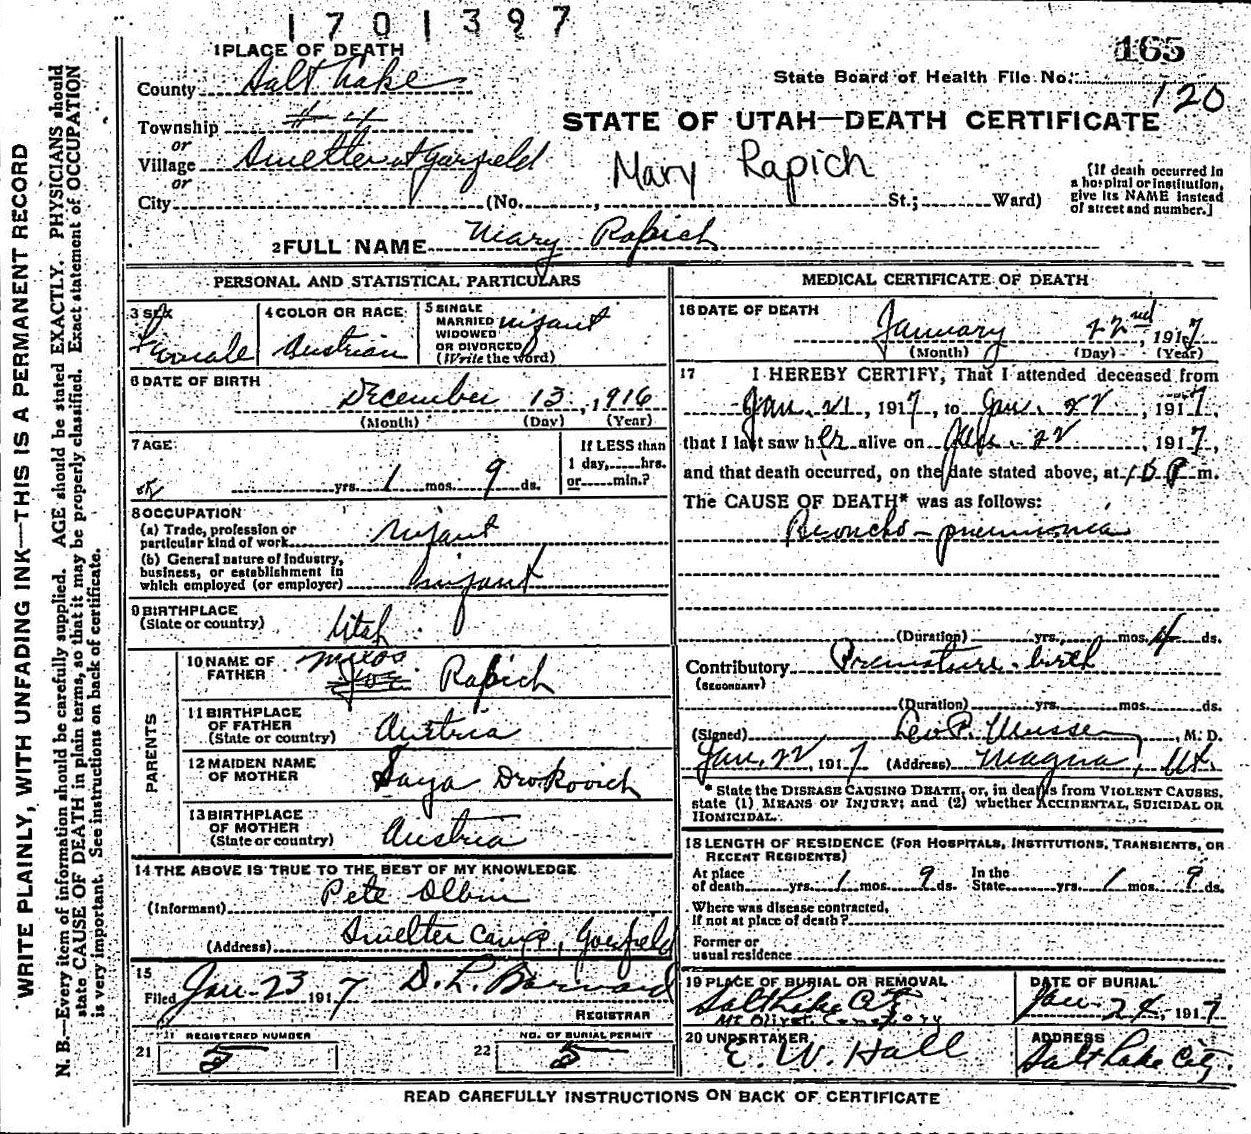 1701397
165
1 PLACE OF DEATH
County Salt Lake
State Board of Health File No. 120
Township #4
or
Village Smelter at Garfield
or
City (No. , St.; Ward)
STATE OF UTAH—DEATH CERTIFICATE
Mary Rapich
[If death occurred in
a hospital or institution,
give its NAME instead
of street and number.]
2 FULL NAME Mary Rapich
PERSONAL AND STATISTICAL PARTICULARS
3 SEX
Female
4 COLOR OR RACE
Austrian
5 SINGLE
MARRIED
WIDOWED
OR DIVORCED
(Write the word)
infant
6 DATE OF BIRTH
December 13, 1916
(Month) (Day) (Year)
7 AGE
yrs. 1 mos. 9 ds.
If LESS than
1 day, hrs.
or min.?
8 OCCUPATION
(a) Trade, profession or
particular kind of work infant
(b) General nature of industry,
business, or establishment in
which employed (or employer) infant
9 BIRTHPLACE
(State or country)
Utah
PARENTS
10 NAME OF
FATHER
Mixos
Joe Rapich
11 BIRTHPLACE
OF FATHER
(State or country) Austria
12 MAIDEN NAME
OF MOTHER Saya Drokovich
13 BIRTHPLACE
OF MOTHER
(State or country) Austria
14 THE ABOVE IS TRUE TO THE BEST OF MY KNOWLEDGE
(Informant) Pete
(Address) Smelter Camp, Garfield
15
Filed Jan. 23 1917 D. L.
REGISTRAR
REGISTERED NUMBER
21 5
NO. OF BURIAL PERMIT
22 5
MEDICAL CERTIFICATE OF DEATH
16 DATE OF DEATH
January 22nd, 1917
(Month) (Day) (Year)
17 I HEREBY CERTIFY, That I attended deceased from
Jan. 21, 1917, to Jan. 22, 1917,
that I last saw her alive on Jan. 22 1917,
and that death occurred, on the date stated above, at 10 P m.
The CAUSE OF DEATH* was as follows:
Broncho-pneumonia
(Duration) yrs. mos. 4 ds.
Contributory Premature birth
(SECONDARY)
(Duration) yrs. mos. ds.
(Signed) Leo P. Musser, M. D.
Jan. 22, 1917 (Address) Magna, Ut.
* State the DISEASE CAUSING DEATH, or, in deaths from VIOLENT CAUSES,
state (1) MEANS OF INJURY; and (2) whether ACCIDENTAL, SUICIDAL OR
HOMICIDAL.
18 LENGTH OF RESIDENCE (FOR HOSPITALS, INSTITUTIONS, TRANSIENTS, OR
RECENT RESIDENTS)
At place
of death yrs. 1 mos. 9 ds. In the
State yrs. 1 mos. 9 ds.
Where was disease contracted,
if not at place of death?
Former or
usual residence
19 PLACE OF BURIAL OR REMOVAL
Salt Lake City
Mt Olivet Cemetery
DATE OF BURIAL
Jan. 24, 1917
20 UNDERTAKER
E. W. Hall
ADDRESS
Salt Lake City.
READ CAREFULLY INSTRUCTIONS ON BACK OF CERTIFICATE
WRITE PLAINLY, WITH UNFADING INK—THIS IS A PERMANENT RECORD
N. B.—Every item of information should be carefully supplied. AGE should be stated EXACTLY. PHYSICIANS should
state CAUSE OF DEATH in plain terms, so that it may be properly classified. Exact statement of OCCUPATION
is very important. See instructions on back of certificate.